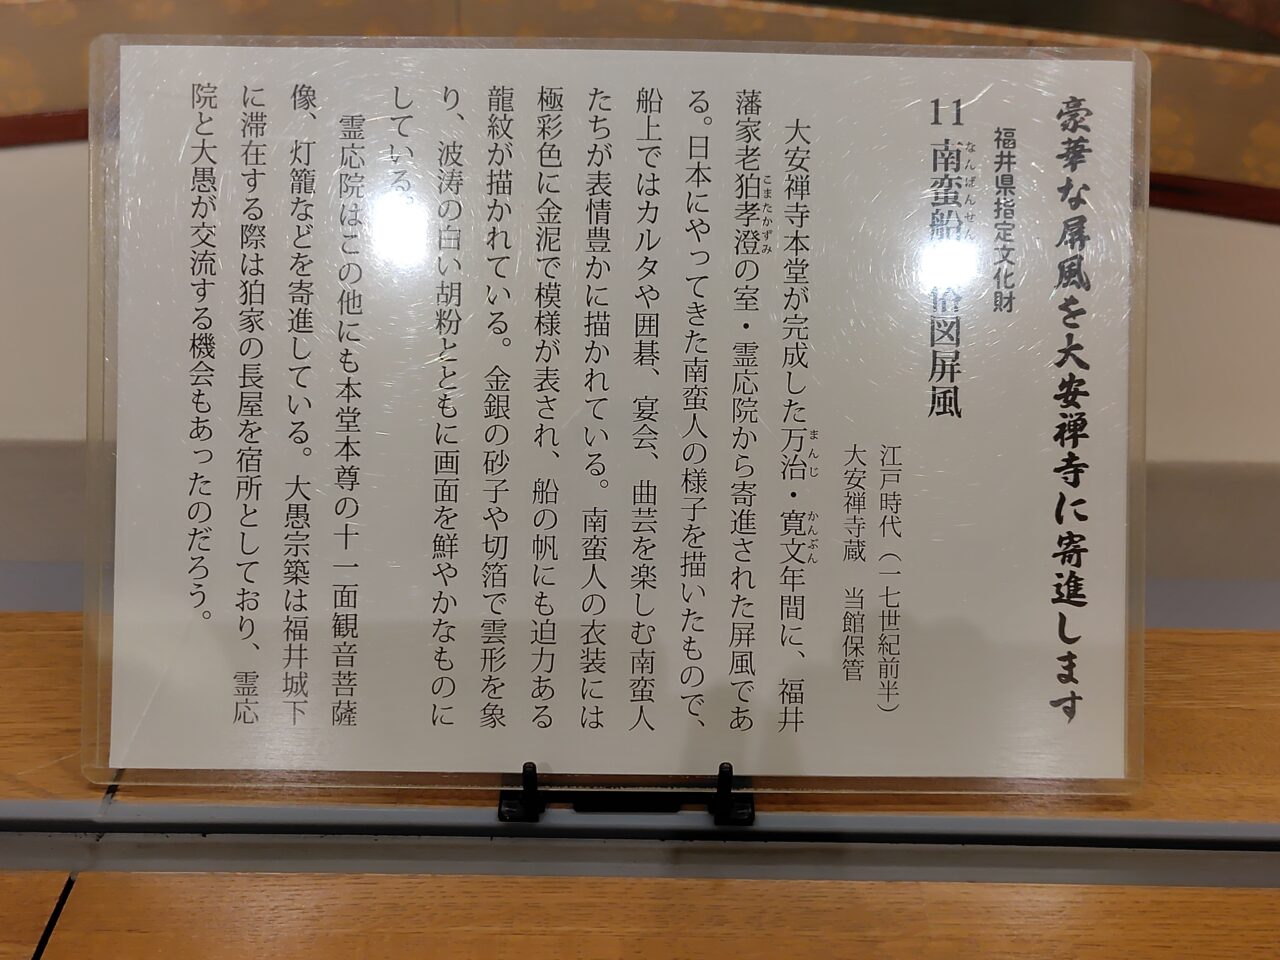 豪華な屏風を大安禅寺に寄進します
福井県指定文化財
11 南蛮船 俗図屏風
なんばんせん
江戸時代（一七世紀前半）
大安禅寺蔵　当館保管
大安禅寺本堂が完成した万治・寛文年間に、福井
まんじ
かんぶん
藩家老狛孝澄の室・霊応院から寄進された屏風であ
こまたかずみ
る。日本にやってきた南蛮人の様子を描いたもので、
船上ではカルタや囲碁、宴会、曲芸を楽しむ南蛮人
たちが表情豊かに描かれている。南蛮人の衣装には
極彩色に金泥で模様が表され、船の帆にも迫力ある
龍紋が描かれている。金銀の砂子や切箔で雲形を象
り、波涛の白い胡粉とともに画面を鮮やかなものに
している。
霊応院はこの他にも本堂本尊の十一面観音菩薩
像、灯籠などを寄進している。大愚宗築は福井城下
に滞在する際は狛家の長屋を宿所としており、霊応
院と大愚が交流する機会もあったのだろう。